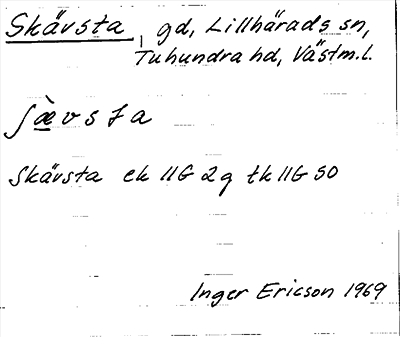 Skävsta, gd, Lillhärads sn,
Tuhundra hd, Västm.l.
ʃæ̀vsta
Skävsta ek 11G 2g tk 11G SO
Inger Ericson 1969